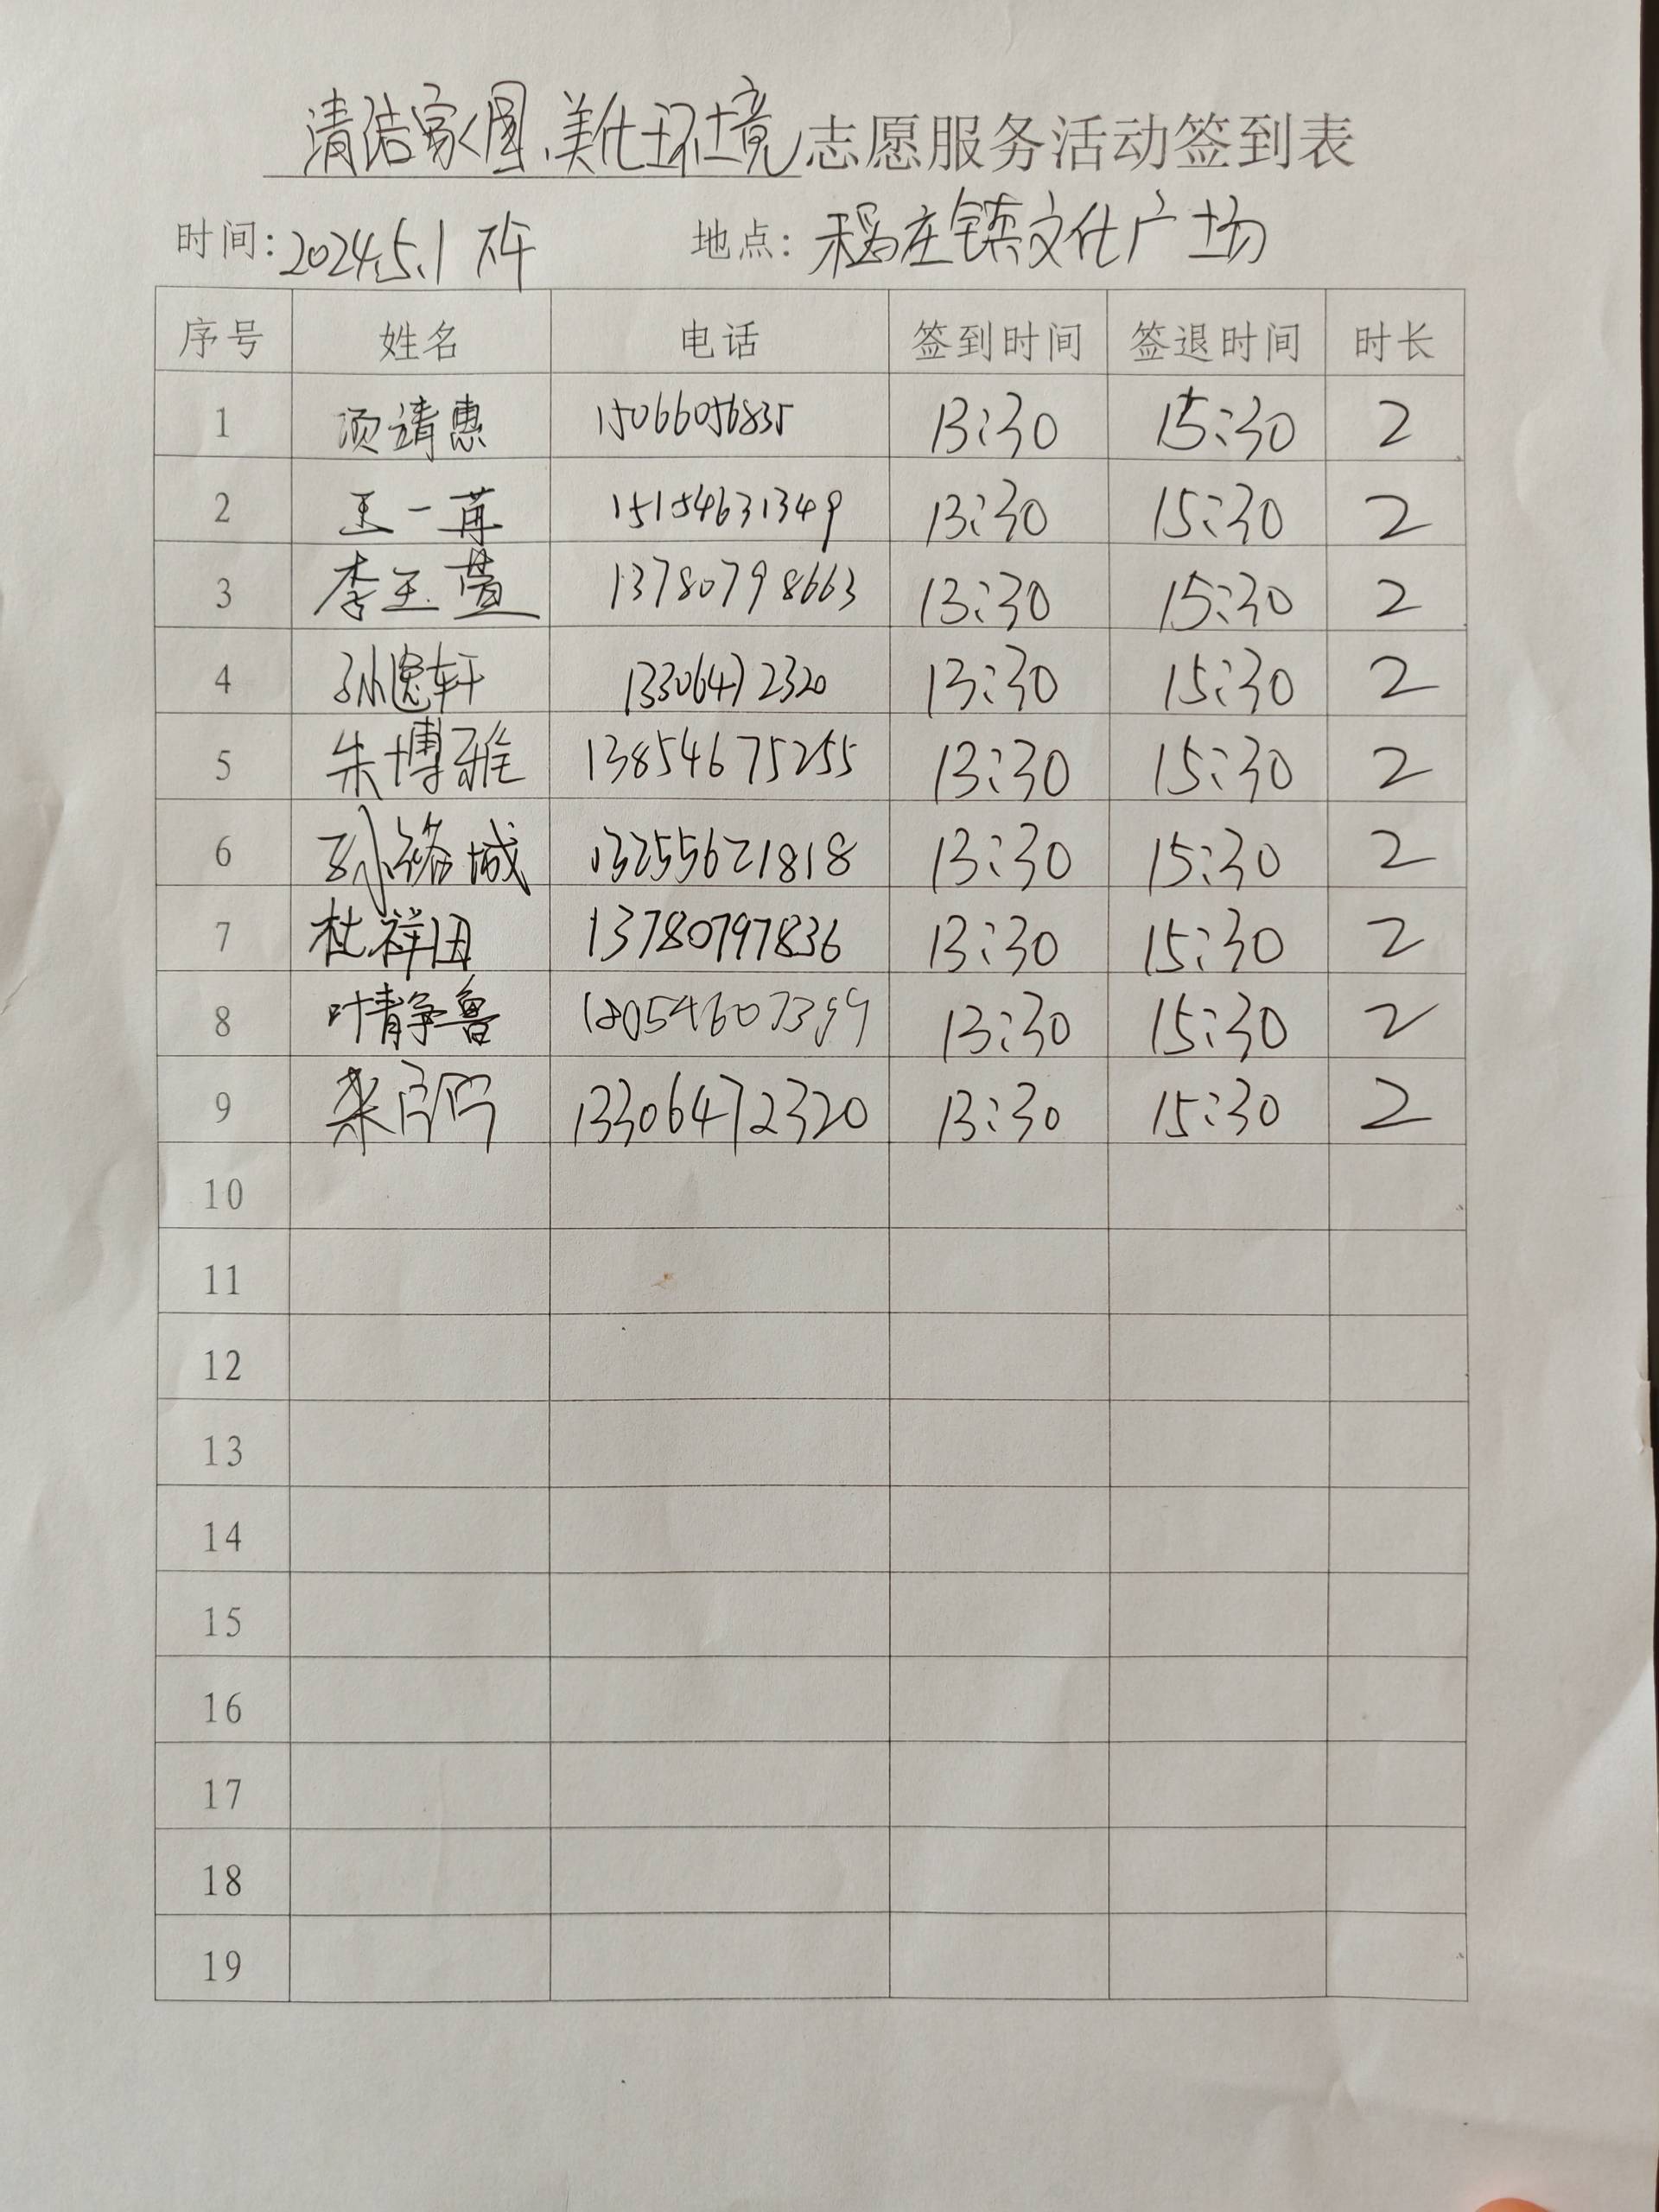 清洁家园、美化环境志愿服务活动签到表
时间:2024.5.1 下午 地点:稻庄镇文化广场
序号 姓名 电话 签到时间 签退时间 时长
1 项靖惠 15066056835 13:30 15:30 2
2 王一苒 15154631349 13:30 15:30 2
3 李玉萱 13780798663 13:30 15:30 2
4 孙逸轩 13306472320 13:30 15:30 2
5 朱博雅 13854675255 13:30 15:30 2
6 孙铭城 13255621818 13:30 15:30 2
7 杜祥田 13780797836 13:30 15:30 2
8 叶静鲁 18054607399 13:30 15:30 2
9 13306472320 13:30 15:30 2
10
11
12
13
14
15
16
17
18
19